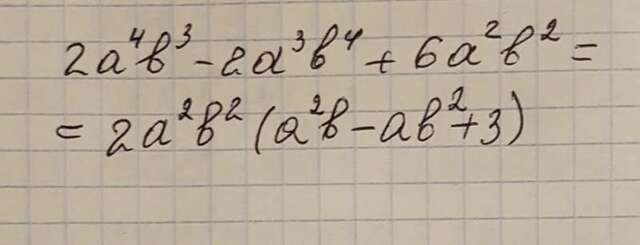 2a⁴b³ - 2a³b⁴ + 6a²b² =
= 2a²b² (a²b - ab² + 3)